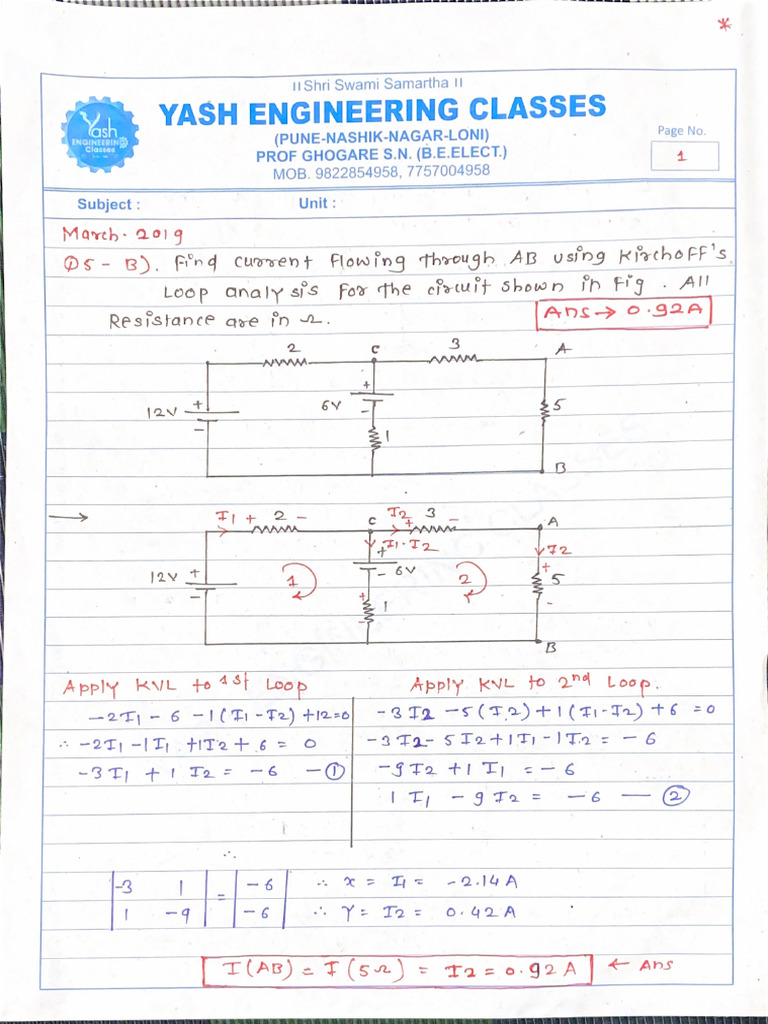 *
॥ Shri Swami Samartha ॥
YASH ENGINEERING CLASSES
(PUNE-NASHIK-NAGAR-LONI)
PROF GHOGARE S.N. (B.E.ELECT.)
MOB. 9822854958, 7757004958
Yash
ENGINEERING
Classes
Page No.
1
Subject : Unit :
March-2019
Q5 - B). Find current flowing through AB using Kirchoff's
Loop analysis for the circuit shown in Fig. All
Resistance are in Ω. Ans → 0.92A
2 C 3 A
12V + - 6V + - 1 5
B
→ I1 + 2 - C I2 + 3 - A
I1-I2 I2
12V + - 1 + - 6V 2 + 5 -
+ 1 -
B
Apply KVL to 1st Loop
-2I1 - 6 - 1(I1-I2) + 12=0
∴ -2I1 -1I1 +1I2 + 6 = 0
-3I1 + 1 I2 = -6 - ①
Apply KVL to 2nd Loop.
-3I2 -5(I2) +1(I1-I2) +6 =0
-3I2-5I2+1I1-1I2 = -6
-9I2 +1I1 = -6
1 I1 - 9I2 = -6 — ②
∴
|-3 1| = |-6| ∴ X = I1 = -2.14A
|1 -9| |-6| ∴ Y = I2 = 0.42A
I(AB) = I(5Ω) = I2 = 0.92A ← Ans